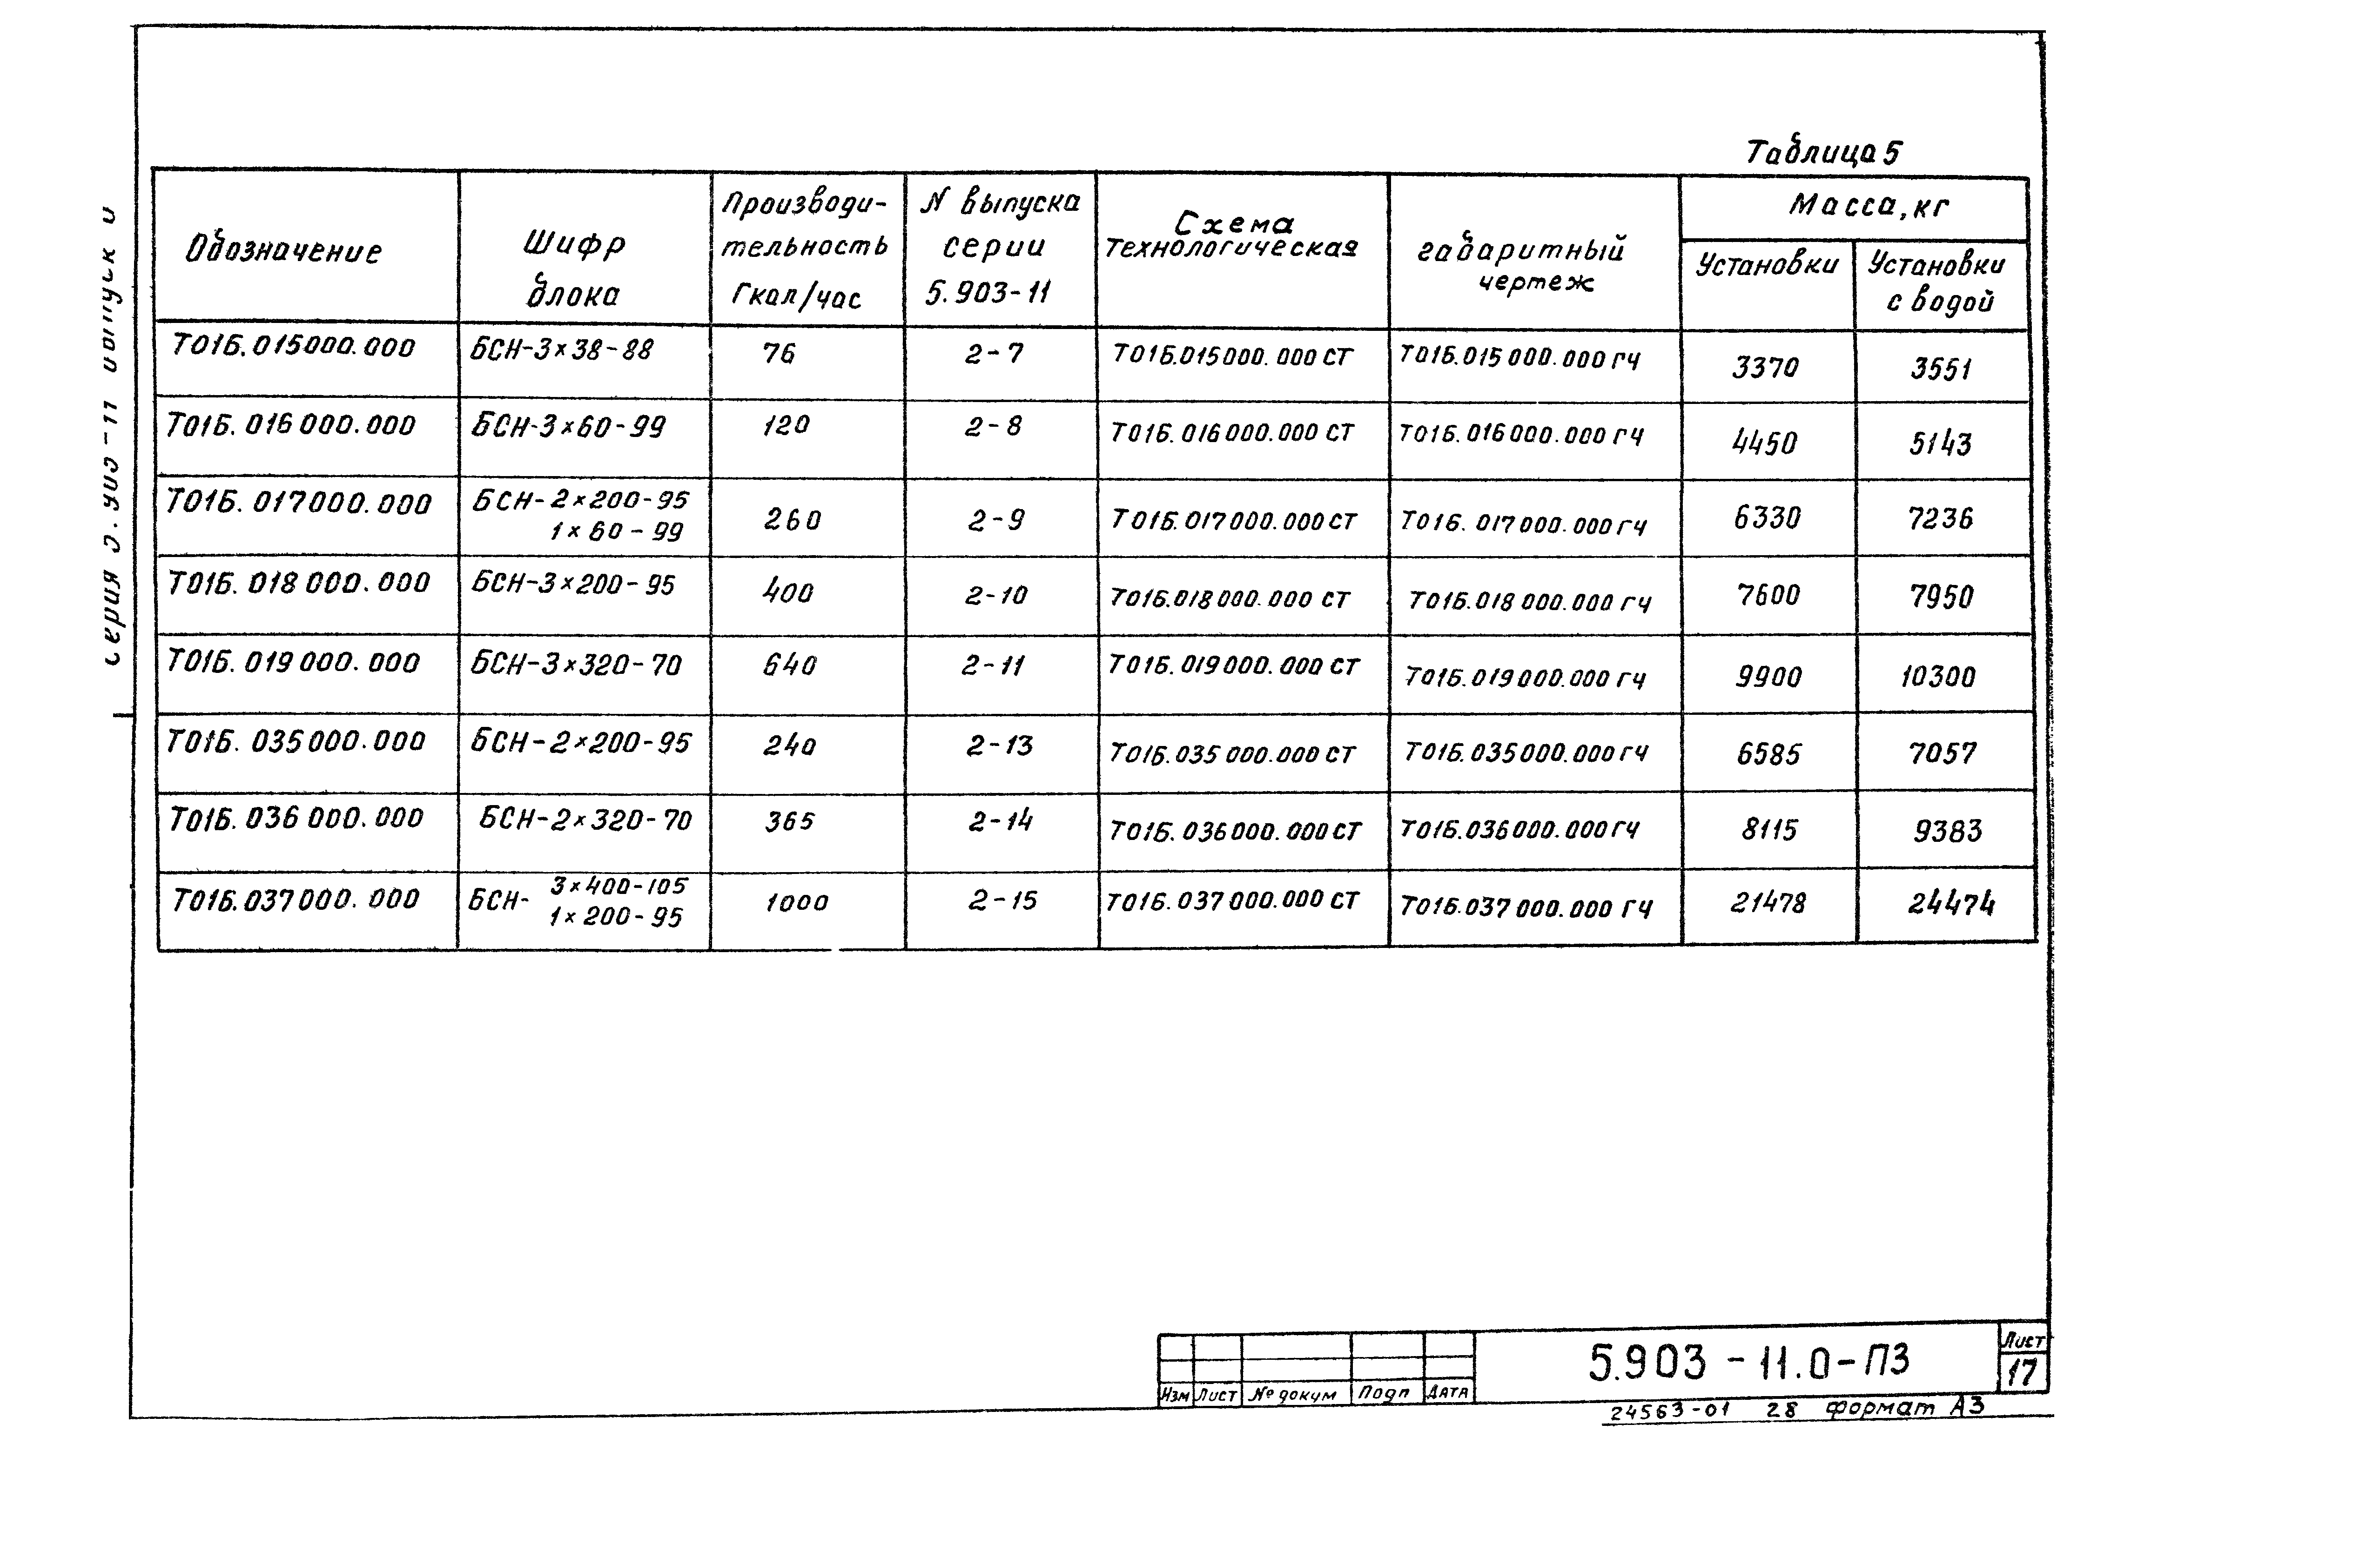 Таблица 5
Обозначение
Шифр
блока
Производи-
тельность
Гкал/час
N выпуска
серии
5.903-11
Схема
технологическая
габаритный
чертеж
Масса, кг
Установки
Установки
с водой
Т01Б.015000.000 БСН-3×38-88 76 2-7 Т01Б.015000.000 СТ Т01Б.015000.000 ГЧ 3370 3551
Т01Б.016000.000 БСН-3×60-99 120 2-8 Т01Б.016000.000 СТ Т01Б.016000.000 ГЧ 4450 5143
Т01Б.017000.000 БСН-2×200-95 260 2-9 Т01Б.017000.000 СТ Т01Б.017000.000 ГЧ 6330 7236
1×60-99
Т01Б.018000.000 БСН-3×200-95 400 2-10 Т01Б.018000.000 СТ Т01Б.018000.000 ГЧ 7600 7950
Т01Б.019000.000 БСН-3×320-70 640 2-11 Т01Б.019000.000 СТ Т01Б.019000.000 ГЧ 9900 10300
Т01Б.035000.000 БСН-2×200-95 240 2-13 Т01Б.035000.000 СТ Т01Б.035000.000 ГЧ 6585 7057
Т01Б.036000.000 БСН-2×320-70 365 2-14 Т01Б.036000.000 СТ Т01Б.036000.000 ГЧ 8115 9383
Т01Б.037000.000 БСН-3×400-105 1000 2-15 Т01Б.037000.000 СТ Т01Б.037000.000 ГЧ 21478 24474
1×200-95
Изм Лист № докум Подп Дата
5.903-11.0-ПЗ
Лист
17
24563-01 28 формат А3